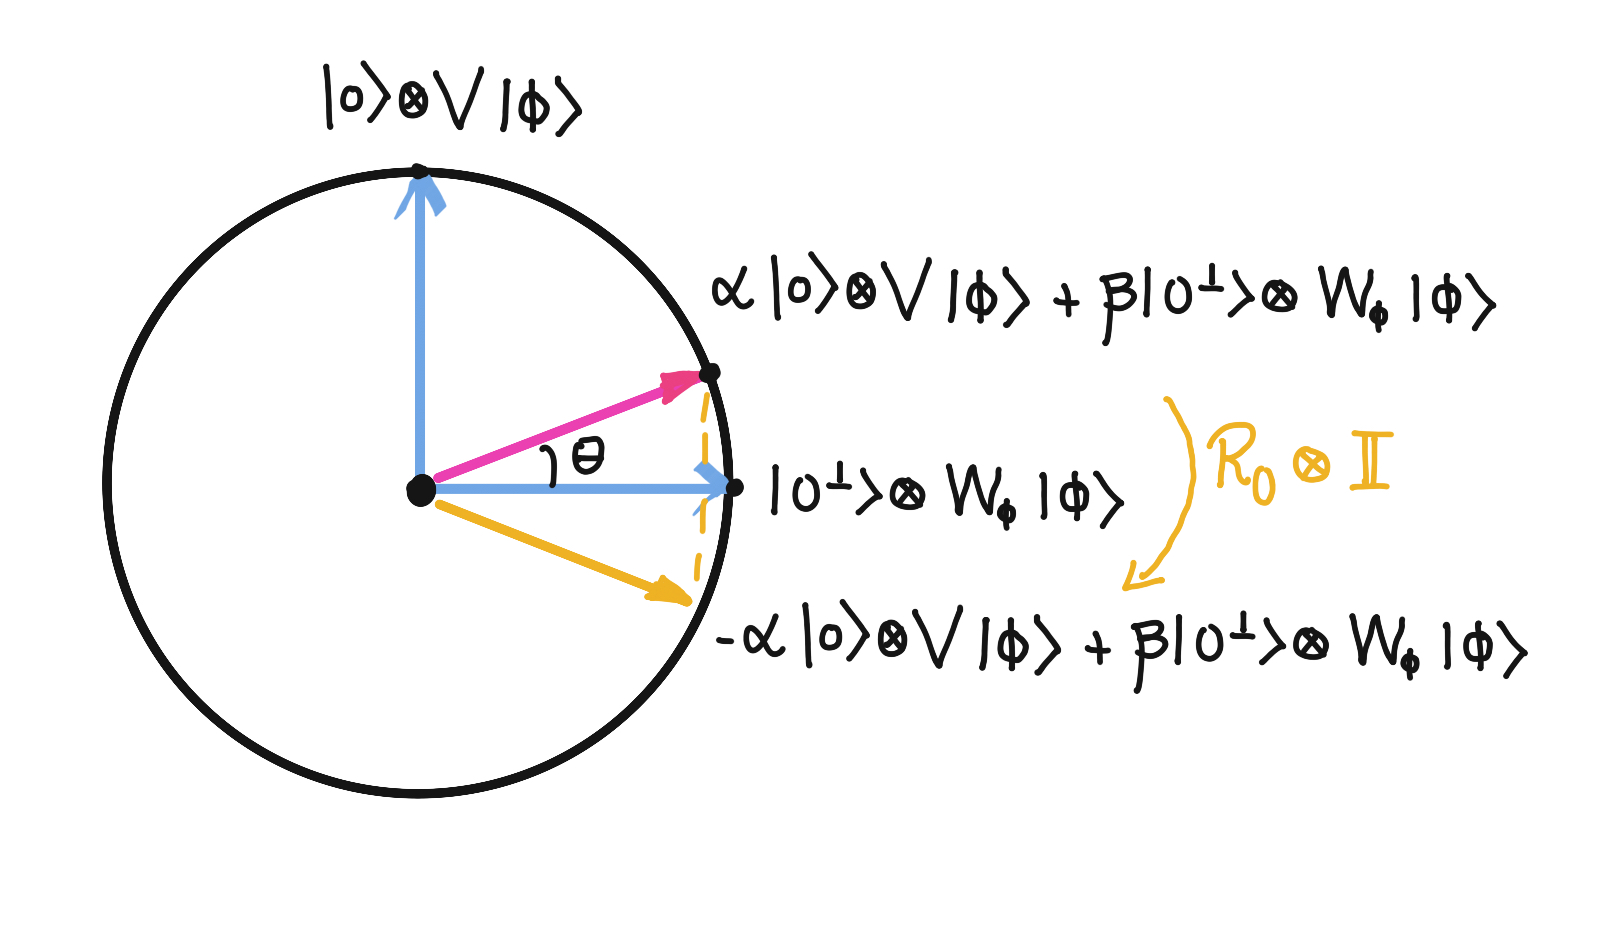 |0⟩⊗V|ϕ⟩
α|0⟩⊗V|ϕ⟩ + β|0^⊥⟩⊗ W_ϕ |ϕ⟩
θ
|0^⊥⟩⊗ W_ϕ |ϕ⟩
R_0 ⊗ 𝕀
-α|0⟩⊗V|ϕ⟩ + β|0^⊥⟩⊗ W_ϕ |ϕ⟩